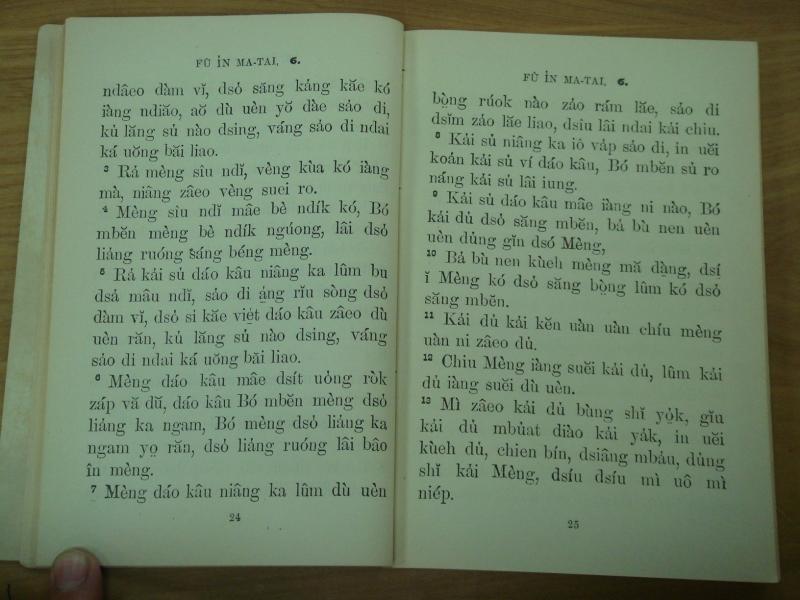 FŪ ỈN MA-TAI, 6.
ndâeo dàm vĭ, dsỏ săng kảng kăe kó
iàng ndiăo, aŏ dù uèn yŏ dàe sảo di,
kủ lăng sủ nào dsing, váng sảo di ndai
ká uŏng băi liao.
3 Rả mèng sìu ndĭ, vèng kùa kó iàng
mà, niâng zâeo vèng suei ro.
4 Mèng sìu ndĭ mâe bè ndík kó, Bó
mbĕn mèng bè ndík ngúong, lâi dsỏ
liảng ruóng sáng béng mèng.
5 Rả kải sủ dáo kâu niâng ka lûm bu
dsả mâu ndĭ, sảo di ảng rĭu sòng dsỏ
dàm vĭ, dsỏ si kăe việt dáo kâu zâeo dù
uèn răn, kủ lăng sủ nào dsing, váng
sảo di ndai ká uŏng băi liao.
6 Mèng dáo kâu mâe dsít uỏng ròk
záp vă dŭ, dáo kâu Bó mbĕn mèng dsỏ
liảng ka ngam, Bó mèng dsỏ liảng ka
ngam yo̤ răn, dsỏ liảng ruóng lâi bâo
în mèng.
7 Mèng dáo kâu niâng ka lûm dù uèn
24
FŪ ỈN MA-TAI, 6.
bò̤ng rúok nào zảo rám lăe, sảo di
dsĭm zảo lăe liao, dsîu lâi ndai kải chiu.
8 Kải sủ niâng ka iô vảp sảo di, in uĕi
koán kải sủ ví dáo kâu, Bó mbĕn sủ ro
náng kải sủ lâi iung.
9 Kải sủ dáo kâu mâe iàng ni nào, Bó
kải dủ dsỏ săng mbĕn, bả bù nen uèn
uèn dủng gĭn dsó Mèng,
10 Bả bù nen kùeh mèng mă dạ̀ng, dsí
ĭ Mèng kó dsỏ săng bò̤ng lûm kó dsỏ
săng mbĕn.
11 Kải dủ kải kĕn uàn uàn chíu mèng
uàn ni zâeo dủ.
12 Chiu Mèng iàng suĕi kải dủ, lûm kải
dủ iàng suĕi dù uèn.
13 Mì zâeo kải dủ bùng shĭ yỏ̤k, gĭu
kải dủ mbủat diào kải yảk, in uĕi
kùeh dủ, chien bín, dsiâng mbảu, dủng
shĭ kải Mèng, dsíu dsíu mì uô mì
niép.
25